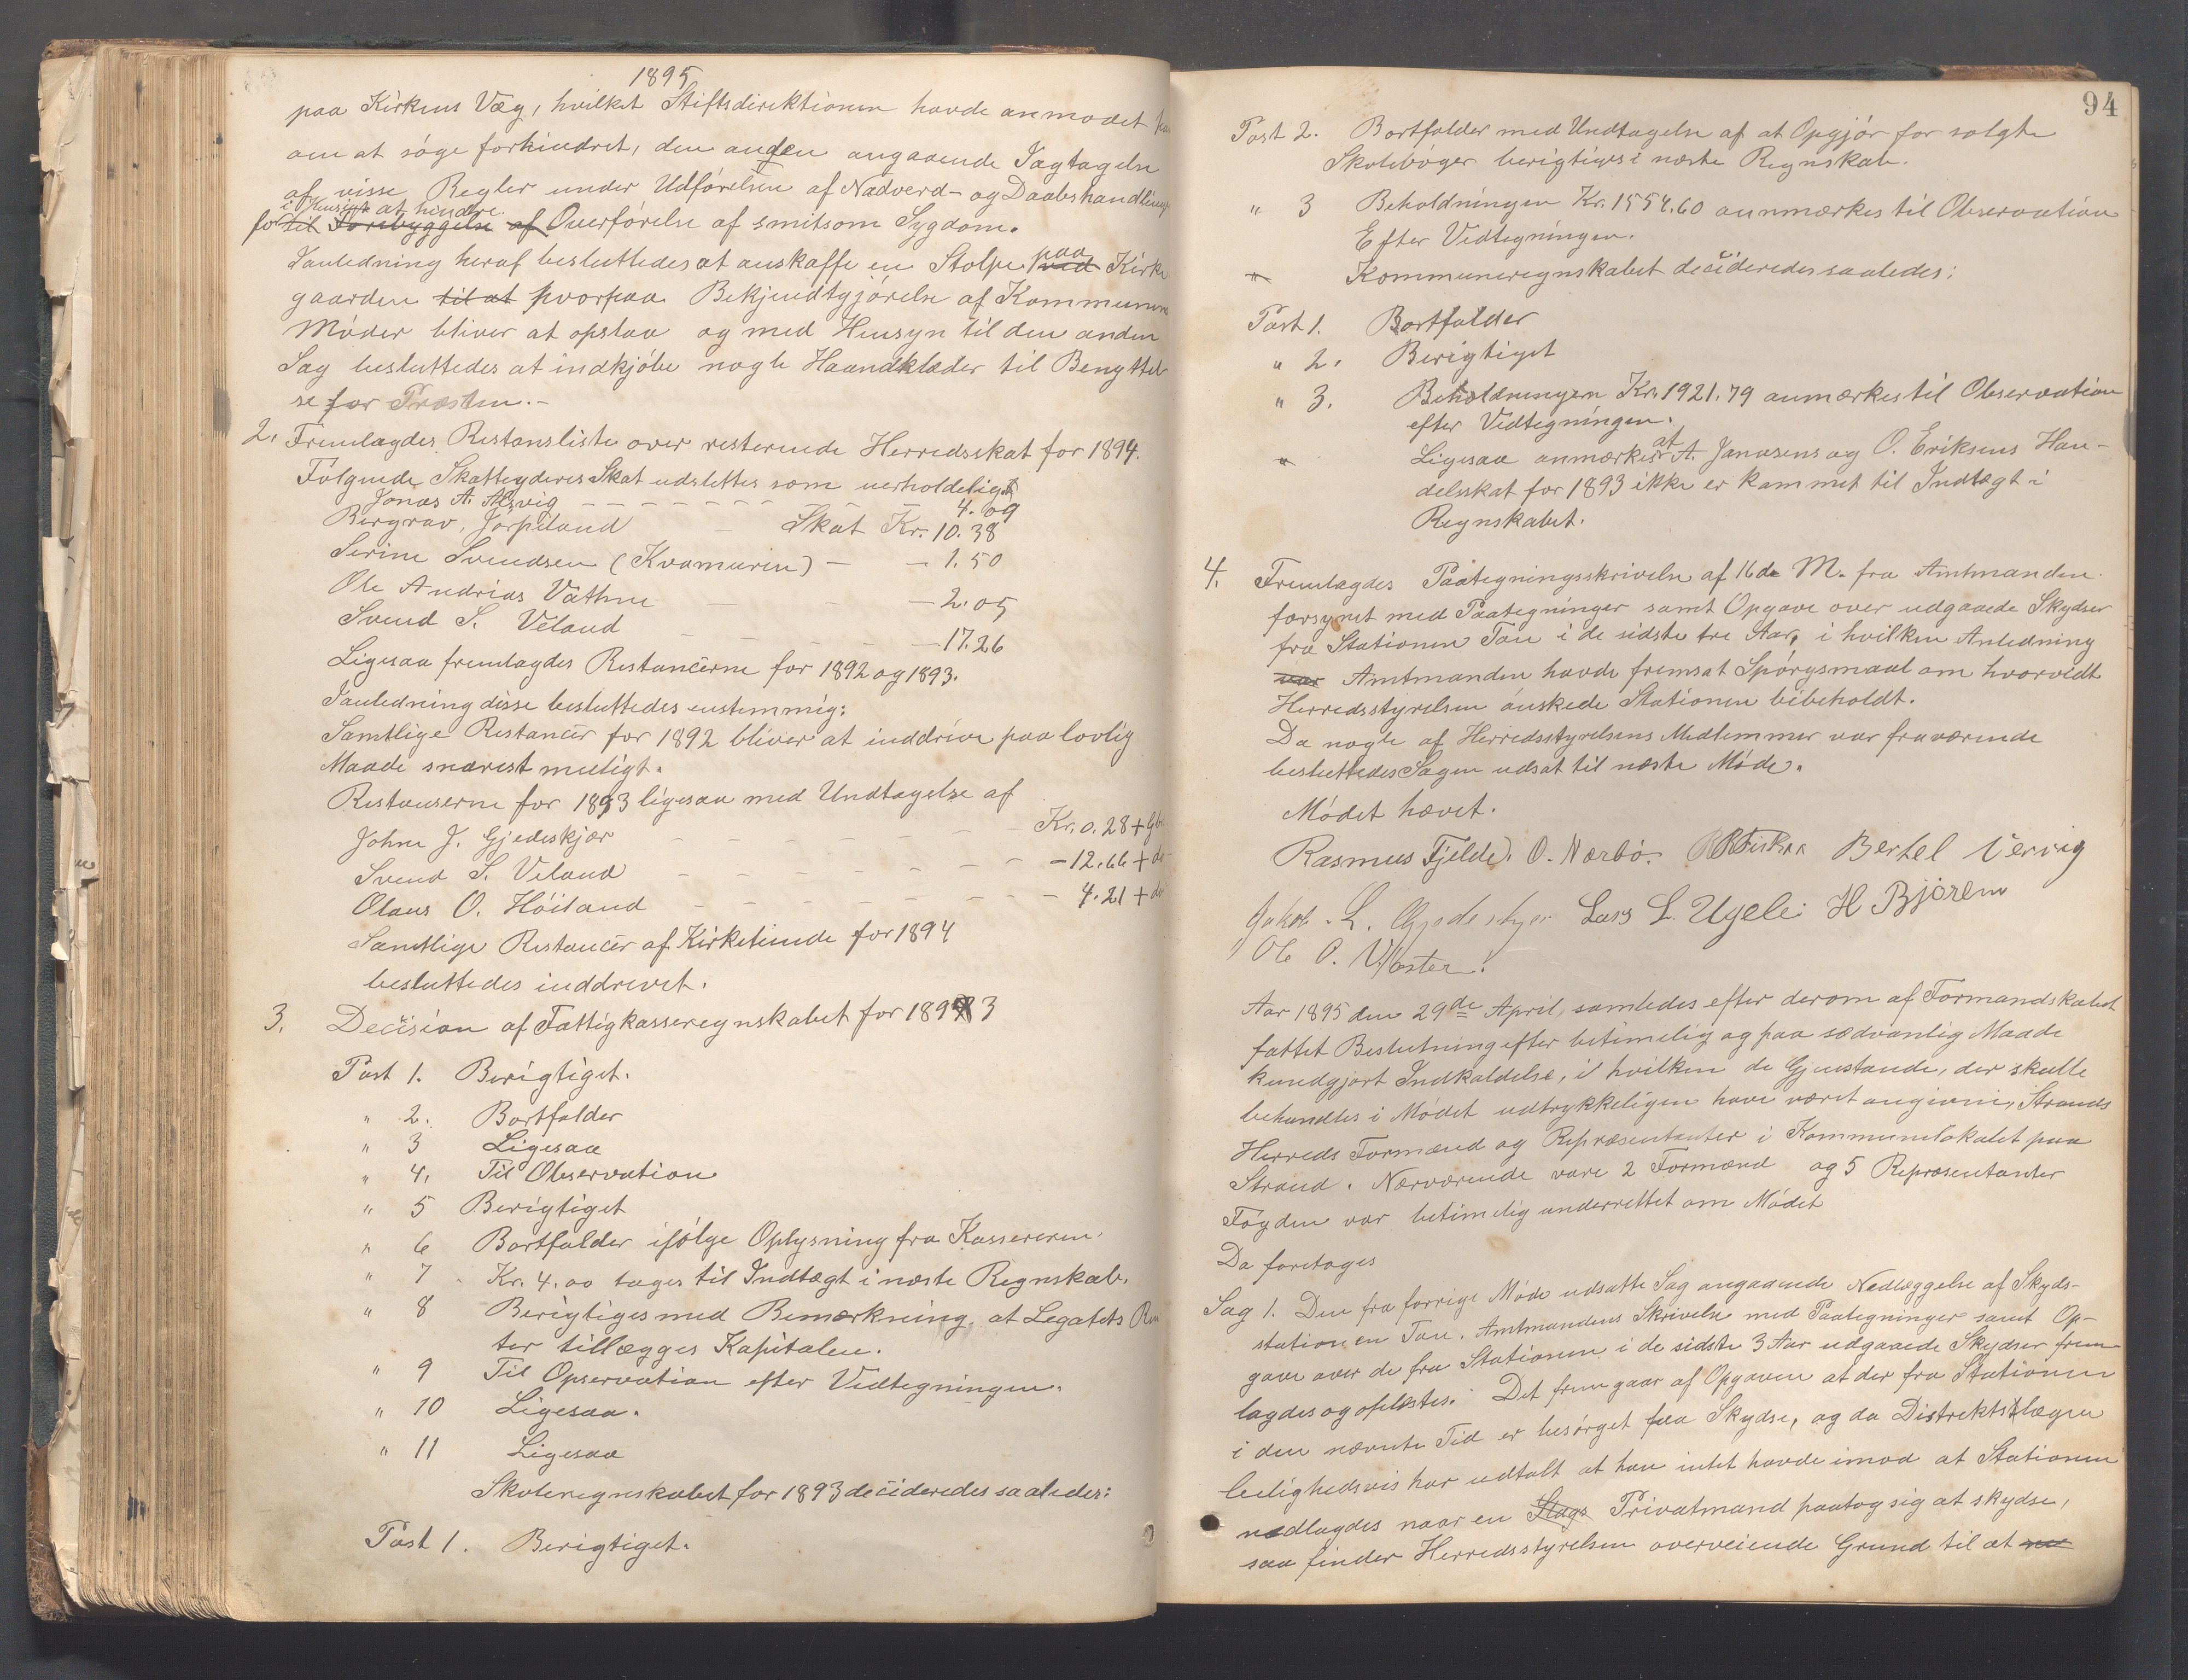 1895
paa Kirkens Væg, hvilket Stiftsdirektionen havde anmodet
om at søge forhindret, den anden angaaende Iagtagelse
af visse Regler under Udførelsen af Nadverd- og Daabshandling
i Hensigt at hindre
for til Forebyggelse af Overførelse af smitsom Sygdom.
I anledning heraf besluttedes at anskaffe en Stolpe paa ved Kirke
gaarden til at hvorpaa Bekjendtgjørelse af Kommunens
Møder bliver at opslaa og med Hensyn til den anden
Sag besluttedes at indkjøbe nogle Haandklæder til Benyttel
se for Præsten.-
2. Fremlagdes Restansliste over resterende Herredsskat for 1894.
Følgende Skatteyderes Skat udslettes som uerholdeligt
Jonas A. Alsvig - - - - - - - 4.09
Bergrav, Jørpeland Skat Kr. 10.38
Serine Svendsen (Kvamurin) - - 1.50
Ole Andrias Vathne - - - 2.05
Svend S. Veland - - - - 17.26
Ligesaa fremlagdes Restancerne for 1892 og 1893.
I anledning disse besluttedes enstemmig:
Samtlige Restancer for 1892 bliver at inddrive paa lovlig
Maade snarest muligt.
Restanserne for 1893 ligesaa med Undtagelse af
John J. Gjedeskjær - - - - - - - Kr. 0.28 +
Svend S. Veland - - - - - - - - 12.66 + do
Olaus O. Høiland - - - - - - - - 4.21 + do
Samtlige Restancer af Kirketiende for 1894
besluttedes inddrevet.
3. Decision af Fattigkasseregnskabet for 1893
Post 1. Berigtiget.
" 2. Bortfalder
" 3 Ligesaa
" 4. Til Observation
" 5 Berigtiget
" 6 Bortfalder ifølge Oplysning fra Kassereren.
" 7 Kr. 4.00 tages til Indtægt i næste Regnskab.
" 8 Berigtiges med Bemærkning, at Legatets Ren
ter tillægges Kapitalen.
" 9 Til Opservation efter Vedtegningen.
" 10 Ligesaa.
" 11 Ligesaa
Skoleregnskabet for 1893 decideredes saaledes:
Post 1. Berigtiget.
94
Post 2. Bortfalder med Undtagelse af at Opgjør for solgte
Skolebøger berigtiges i næste Regnskab.
" 3 Beholdningen Kr. 1554.60 anmærkes til Observation
Efter Vedtegningen.
" Kommuneregnskabet decideredes saaledes:
Post 1. Bortfalder
" 2. Berigtiget
" 3. Beholdningen Kr. 1921.79 anmærkes til Observation
efter Vedtegningen.
" Ligesaa anmærkes at A. Janasens og O. Eriksens Han-
delsskat for 1893 ikke er kommet til Indtægt i
Regnskabet.
4. Fremlagdes Paategningsskrivelse af 16de M. fra Amtmanden
forsynet med Paategninger samt Opgave over udgaaede Skydser
fra Stationen Tau i de sidste tre Aar, i hvilken Anledning
var Amtmanden havde fremsat Spørgsmaal om hvorvidt
Herredsstyrelsen ønskede Stationen bibeholdt.
Da nogle af Herredsstyrelsens Medlemmer var fraværende
besluttedes Sagen udsat til næste Møde.
Mødet hævet.
Rasmus Fjelde. O. Nærbø. Bertel Vervig
Jakob L. Gjedeskjer Lars L. Ugeli H Bjøren
Ole O. Voster.
Aar 1895 den 29de April, samledes efter derom af Formandskabet
fattet Beslutning efter betimelig og paa sædvanlig Maade
kundgjort Indkaldelse, i hvilken de Gjenstande, der skulle
behandles i Mødet udtrykkeligen have været angivne, Strands
Herreds Formænd og Repræsentanter i Kommunelokalet paa
Strand. Nærværende vare 2 Formænd og 5 Repræsentanter
Fogden var betimelig underrettet om Mødet
Da foretoges
Sag 1. Den fra forrige Møde udsatte Sag angaaende Nedlæggelse af Skyds-
stationen Tau. Amtmandens Skrivelse med Paategninger samt Op-
gave over de fra Stationen i de sidste 3 Aar udgaaede Skydser frem-
lagdes og oplæstes. Det fremgaar af Opgaven at der fra Stationen
i den nævnte Tid er besørget faa Skydse, og da Distriktslægen
leilighedsvis har udtalt at han intet havde imod at Stationen
nedlagdes naar en Slags Privatmand paatog sig at skydse,
saa finder Herredsstyrelsen overveiende Grund til at